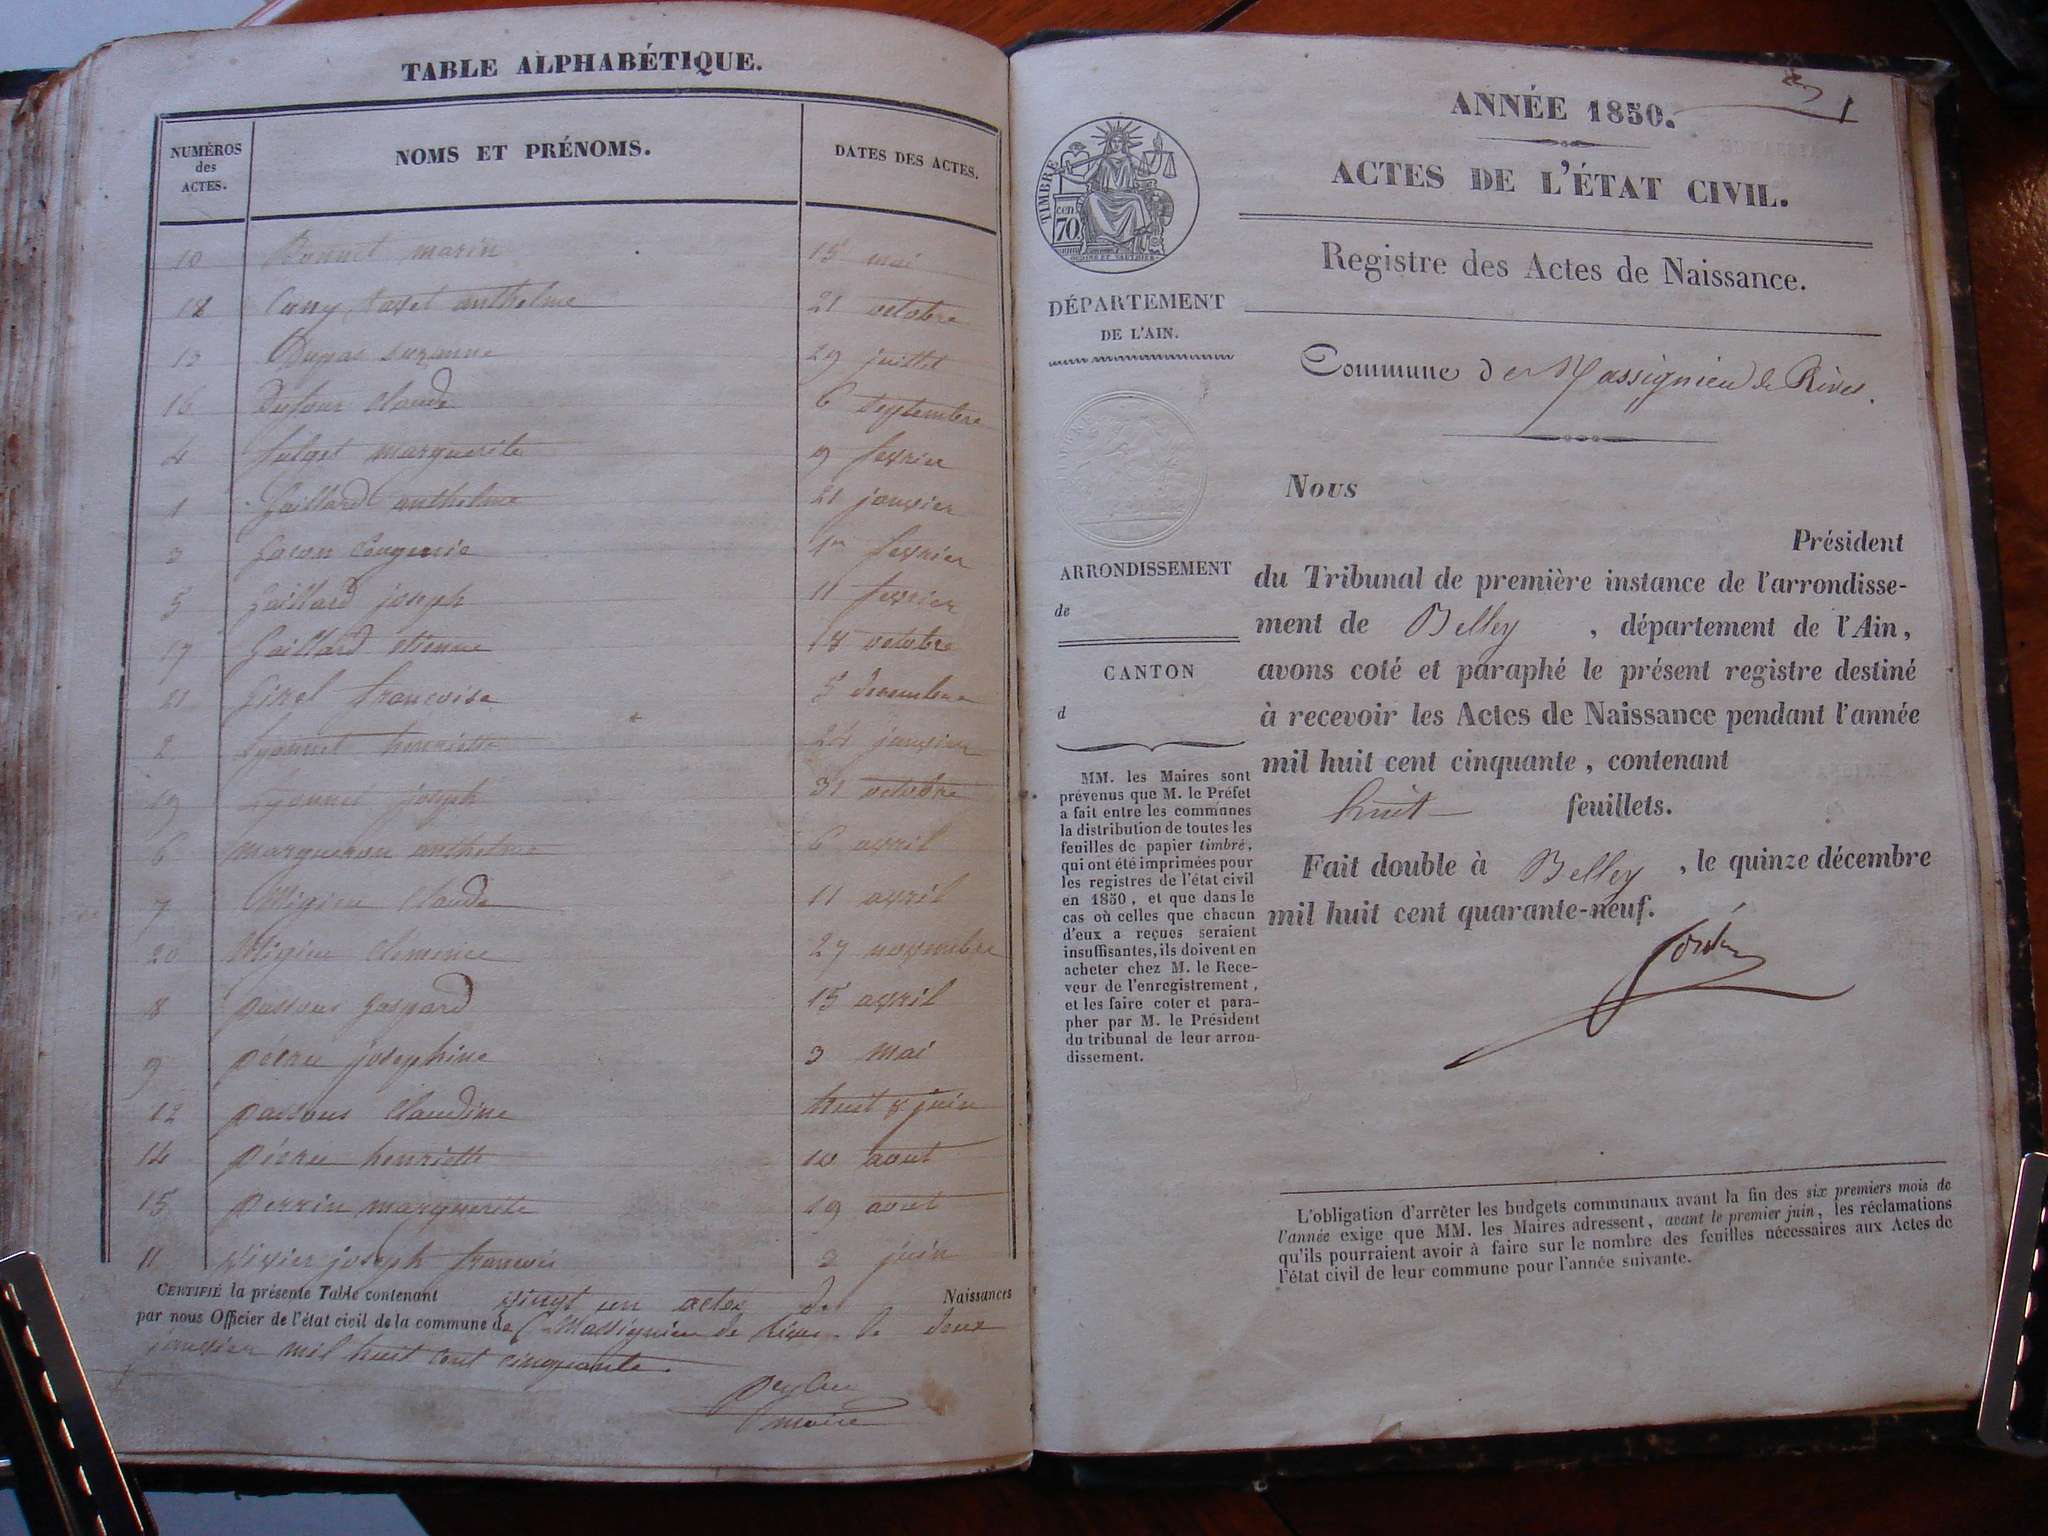 TABLE ALPHABÉTIQUE.
NUMÉROS des ACTES.
NOMS ET PRÉNOMS.
DATES DES ACTES.
10 Bonnet marin 15 mai
18 anthelme 21 octobre
13 Dupas suzanne 29 juillet
16 Dufour Claude 6 septembre
4 marguerite 9 fevrier
1 Gaillard anthelme 21 janvier
3 Eugenie 1er fevrier
5 Gaillard joseph 11 fevrier
17 Gaillard etienne 18 octobre
21 francoise 5 decembre
2 Lyonnet henriette 24 janvier
19 Lyonnet joseph 31 octobre
6 Margueron anthelme 6 avril
7 Migieu Claude 11 avril
20 Migieu Clemence 27 novembre
8 passous gaspard 15 avril
9 pécru josephine 3 mai
12 passous Claudine huit 8 juin
14 pécru henriette 10 aout
15 perrin marguerite 19 aout
11 vivier joseph francois 3 juin
CERTIFIÉ la présente Table contenant vingt un actes de Naissances
par nous Officier de l'état civil de la commune de Massignieu de Rives le deux
janvier mil huit cent cinquante.
maire
1
ANNÉE 1850.
ACTES DE L'ÉTAT CIVIL.
Registre des Actes de Naissance.
TIMBRE
cen. 70
DÉPARTEMENT
DE L'AIN.
Commune de Massignieu de Rives.
Nous
Président
ARRONDISSEMENT
de
CANTON
d
du Tribunal de première instance de l'arrondisse-
ment de Belley , département de l'Ain,
avons coté et paraphé le présent registre destiné
à recevoir les Actes de Naissance pendant l'année
mil huit cent cinquante, contenant
huit feuillets.
Fait double à Belley , le quinze décembre
mil huit cent quarante-neuf.
MM. les Maires sont
prévenus que M. le Préfet
a fait entre les communes
la distribution de toutes les
feuilles de papier timbré,
qui ont été imprimées pour
les registres de l'état civil
en 1850, et que dans le
cas où celles que chacun
d'eux a reçues seraient
insuffisantes, ils doivent en
acheter chez M. le Rece-
veur de l'enregistrement,
et les faire coter et para-
pher par M. le Président
du tribunal de leur arron-
dissement.
L'obligation d'arrêter les budgets communaux avant la fin des six premiers mois de
l'année exige que MM. les Maires adressent, avant le premier juin, les réclamations
qu'ils pourraient avoir à faire sur le nombre des feuilles nécessaires aux Actes de
l'état civil de leur commune pour l'année suivante.